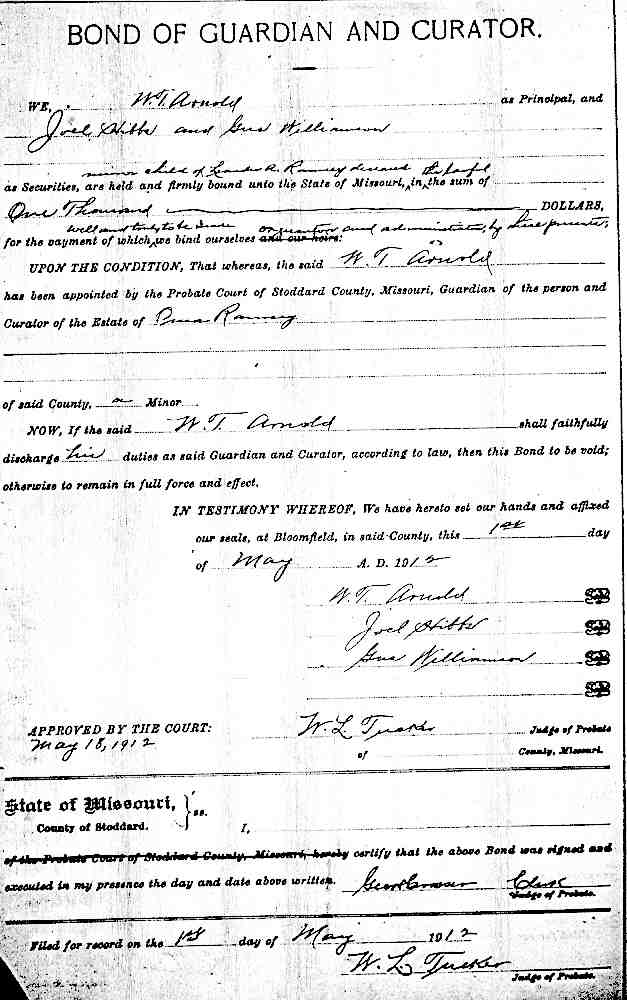 BOND OF GUARDIAN AND CURATOR.
WE, W.T. Arnold as Principal, and
Joel Hibbs and Gus Williamson
minor child of Ramsey deceased
as Securities, are held and firmly bound unto the State of Missouri, in the sum of
One Thousand DOLLARS,
well and truly to be and administrators, by these presents,
for the payment of which, we bind ourselves and our heirs:
UPON THE CONDITION, That whereas, the said W. T. Arnold
has been appointed by the Probate Court of Stoddard County, Missouri, Guardian of the person and
Curator of the Estate of Ramsey
of said County, a Minor
NOW, If the said W. T. Arnold shall faithfully
discharge his duties as said Guardian and Curator, according to law, then this Bond to be void;
otherwise to remain in full force and effect.
IN TESTIMONY WHEREOF, We have hereto set our hands and affixed
our seals, at Bloomfield, in said County, this 1st day
of May A. D. 1912
W. T. Arnold
Joel Hibbs
Gus Williamson
APPROVED BY THE COURT: W. L. Tucker Judge of Probate
May 18, 1912 of County, Missouri.
State of Missouri, } ss.
County of Stoddard. I,
of the Probate Court of Stoddard County, Missouri, hereby certify that the above Bond was signed and
executed in my presence the day and date above written. Clerk
Judge of Probate.
Filed for record on the 1st day of May 1912
W. L. Tucker Judge of Probate.